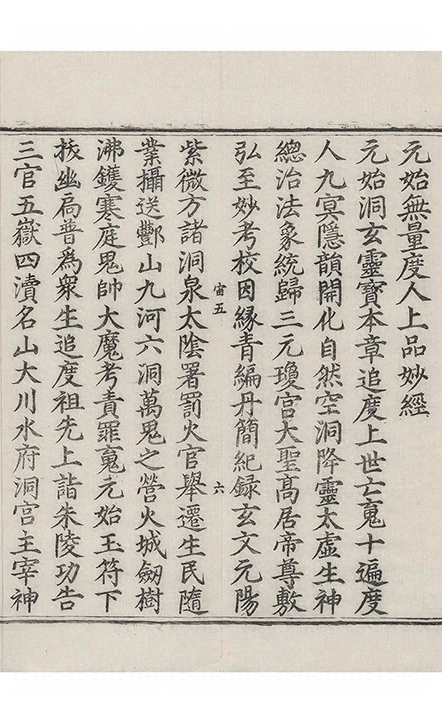 元始無量度人上品妙經
元始洞玄靈寶本章追度上世亡䰟十遍度
人九冥隱韻開化自然空洞降靈太虛生神
總治法象統歸三元瓊宮大聖髙居帝尊敷
弘至妙考校因緣青編丹簡紀録玄文元陽
宙五 六
紫微方諸洞泉太陰署罰火官舉遷生民隨
業攝送酆山九河六洞萬鬼之營火城劒樹
沸鑊寒庭鬼帥大魔考責罪䰟元始玉符下
拔幽局普爲衆生追度祖先上詣朱陵功告
三官五嶽四瀆名山大川水府洞宫主宰神